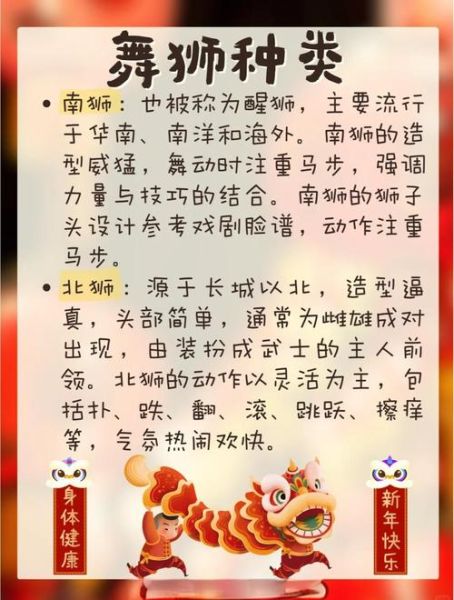 舞狮种类
• 南狮：也被称为醒狮，主要流行
于华南、南洋和海外。南狮的造
型威猛，舞动时注重马步，强调
力量与技巧的结合。南狮的狮子
头设计参考戏剧脸谱，动作注重
马步。
• 北狮：源于长城以北，造型逼
真，头部简单，通常为雌雄成对
出现，由装扮成武士的主人前
领。北狮的动作以灵活为主，包
括扑、跌、翻、滚、跳跃、擦痒
等，气氛热闹欢快。
身体健康
新年快乐